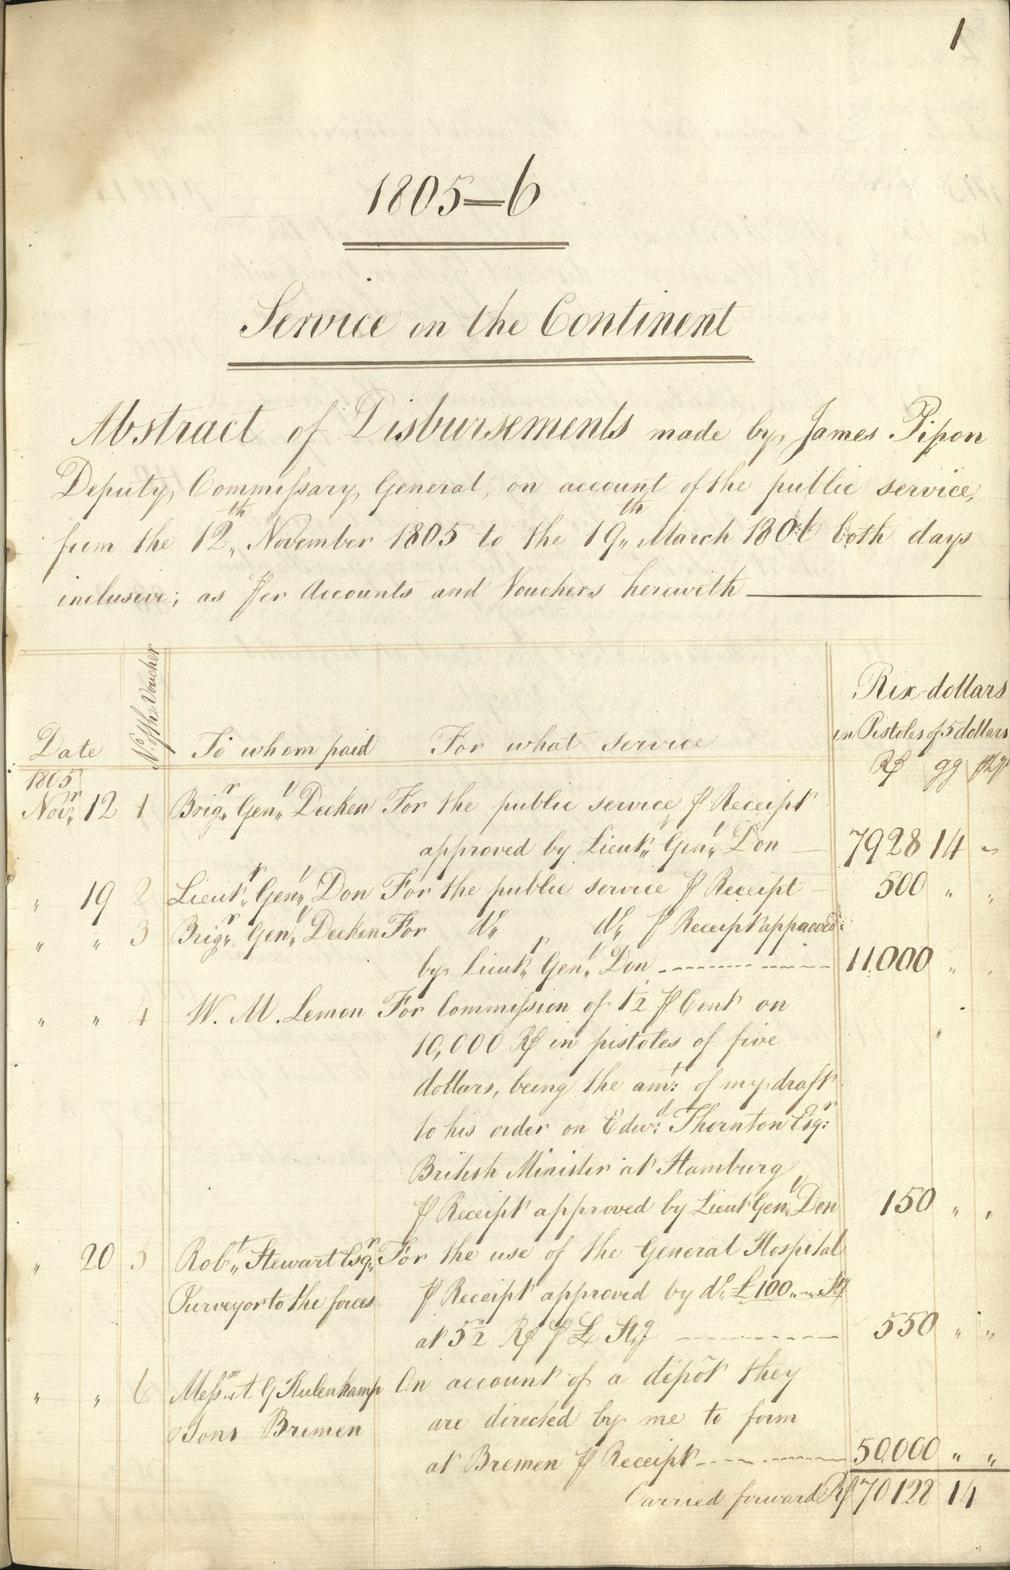 1
1805=6
Service on the Continent
Abstract of Disbursements made by James Pipon
Deputy Commissary General, on account of the public service,
from the 12th November 1805 to the 19th March 1806 both days
inclusive; as Per Accounts and Vouchers herewith
Date
No. of the Voucher
To whom paid
For what service
Rix-dollars
in Pistoles of 5 dollars
R$ gg
1805
Novr. 12 1 Brigr. Genl. Decken For the public service ⅌ Receipt
approved by Lieut. Genl. Don 7928 14 "
" 19 2 Lieutt. Genl. Don For the public service ⅌ Receipt 500 " "
" " 3 Brigr. Genl. Decken For do. do. ⅌ Receipt approved
by Lieutt. Genl. Don 11000 " "
" " 4 W. M. Lemon For Commission of 1½ ⅌ Cent on
10,000 R$ in pistoles of five
dollars, being the amt: of my draft
to his order on Edwd: Thornton Esqr:
British Minister at Hamburg
⅌ Receipt approved by Lieut Genl. Don 150 " "
" 20 5 Robt. Stewart Esqr. For the use of the General Hospital
Purveyor to the forces ⅌ Receipt approved by do. £100 " " Stg
at 5½ R$ ⅌ £ Stg 550 " "
" " 6 Messrs A G Kulenkamp On account of a depôt they
& Sons Bremen are directed by me to form
at Bremen ⅌ Receipt 50,000 " "
Carried forward R$ 70128 14